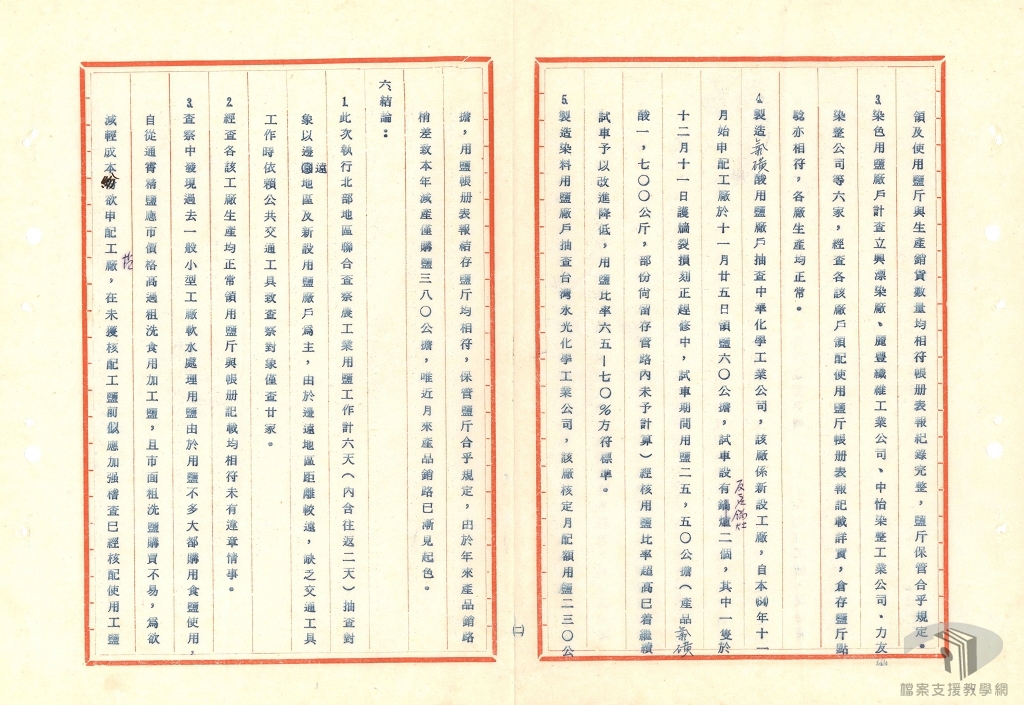 領及使用鹽斤與生產銷貨數量均相符帳册表報紀錄完整，鹽斤保管合乎規定。
3.染色用鹽廠戶計查立興漂染廠、麗豐纖維工業公司、中怡染整工業公司、力友
染整公司等六家，經查各該廠戶領配使用鹽斤帳册表報記載詳實，倉存鹽斤點
驗亦相符，各廠生產均正常。
4.製造氯磺酸用鹽廠戶抽查中華化學工業公司，該廠係新設工廠，自本60年十一
月始申配工廠於十一月廿五日領鹽六〇公擔，試車設有反應鍋爐二個，其中一隻於
十二月十一日護牆裂損刻正趕修中，試車期間用鹽二五，五〇公擔（產品氯磺
酸一，七〇〇公斤，部份尚留存管路內未予計算）經核用鹽比率超高已着繼續
試車予以改進降低，用鹽比率六五—七〇％方符標準。
5.製造染料用鹽廠戶抽查台灣水光化學工業公司，該廠核定月配額用鹽二三〇公
(二)
擔，用鹽帳册表報結存鹽斤均相符，保管鹽斤合乎規定，由於年來產品銷路
稍差致本年減產僅購鹽三八〇公擔，唯近月來產品銷路已漸見起色。
六、結論：
1.此次執行北部地區聯合查察農工業用鹽工作計六天（內含往返二天）抽查對
象以邊遠地區及新設用鹽廠戶為主，由於邊遠地區距離較遠，缺乏交通工具
工作時依賴公共交通工具致查察對象僅查廿家。
2.經查各該工廠生產均正常領用鹽斤與帳册記載均相符未有違章情事。
3.查察中發現過去一般小型工廠軟水處理用鹽由於用鹽不多大都購用食鹽使用，
自從通霄精鹽應市價格高過粗洗食用加工鹽，且市面粗洗鹽購買不易，為欲
減輕成本紛欲申配工廠，在未覆核配工鹽前似應加强稽查已經核配使用工鹽
檔案支援教學網